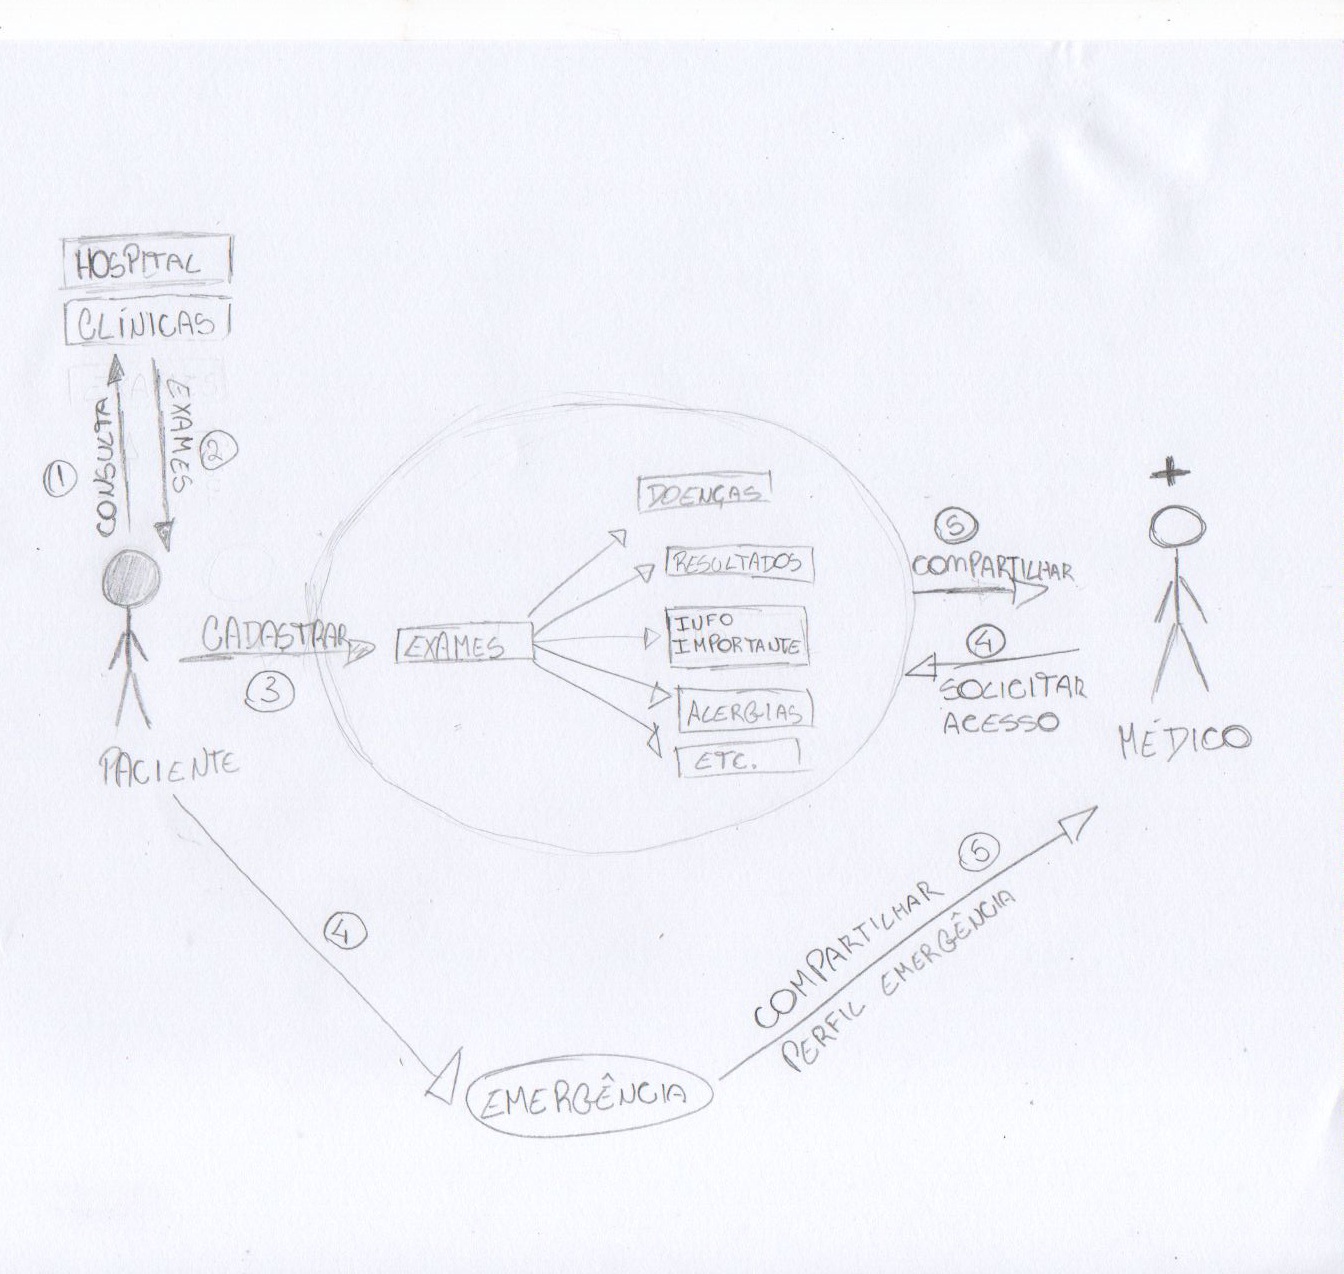 HOSPITAL
CLÍNICAS
EXAMES
CONSULTA
1
EXAMES
2
PACIENTE
CADASTRAR
3
EXAMES
DOENÇAS
RESULTADOS
INFO
IMPORTANTE
ALERGIAS
ETC.
5
COMPARTILHAR
4
SOLICITAR
ACESSO
+
MÉDICO
4
EMERGÊNCIA
COMPARTILHAR 5
PERFIL EMERGÊNCIA